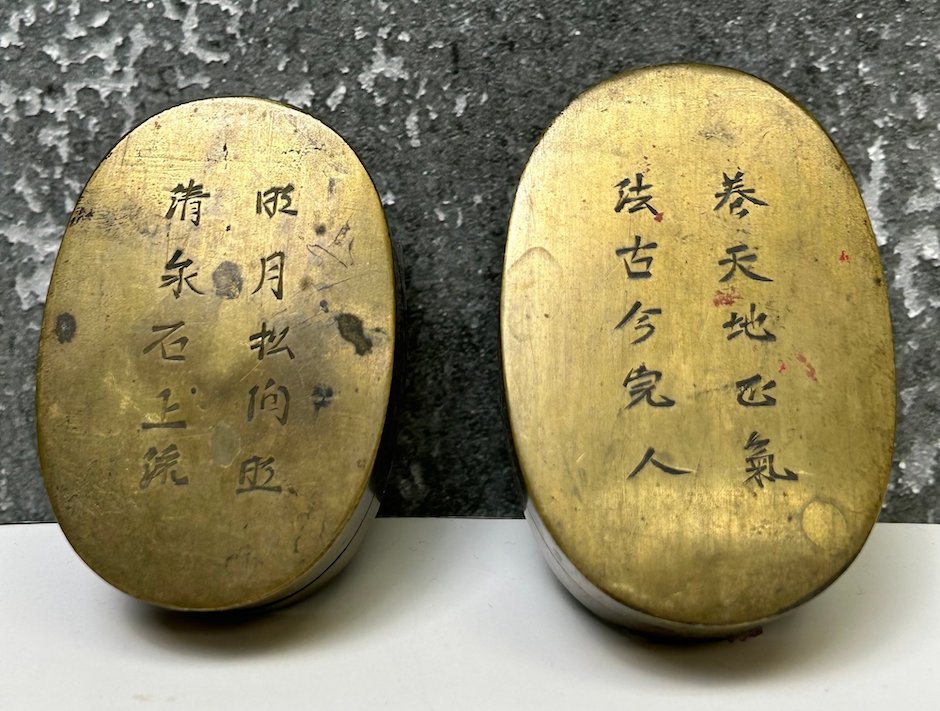 明月松间照
清泉石上流
養天地正氣
法古今完人